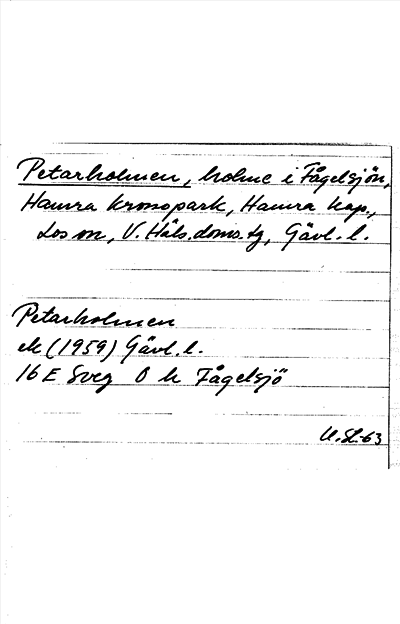 Petarholmen, holme i Fågelsjön,
Hamra kronopark, Hamra kap.,
Los sn, V. Häls. doms. tg, Gävl. l.
Petarholmen
ek (1959) Gävl. l.
16 E Sveg O h Fågelsjö
U. SL-63